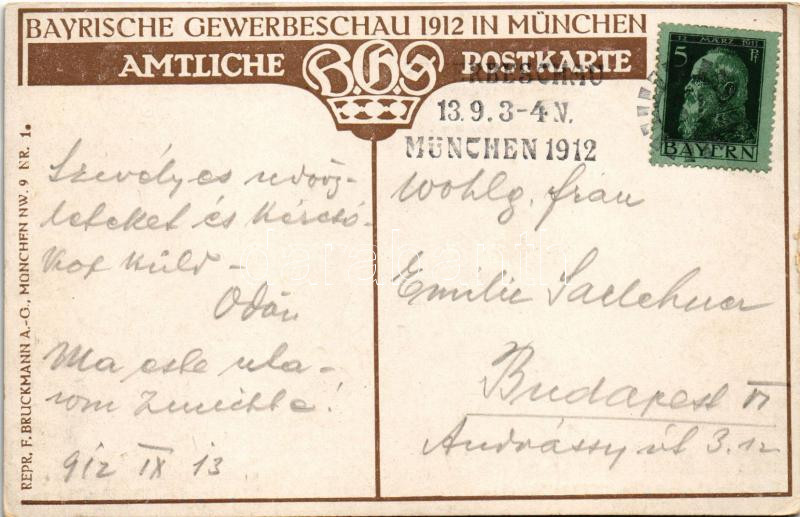 BAYRISCHE GEWERBESCHAU 1912 IN MÜNCHEN
AMTLICHE B.G.S POSTKARTE
12. MÄRZ 1911
5 Pf
BAYERN
RBESCHAU
13.9.3-4N.
MÜNCHEN 1912
REPR. F. BRUCKMANN A.-G., MÜNCHEN NW. 9 NR. 1.
Szívélyes üdvöz-
leteket és
küld -
Ödön
Ma este uta-
zom
912 IX 13
Wohlg. frau
Emilie
Budapest VI
Andrássy út 3.